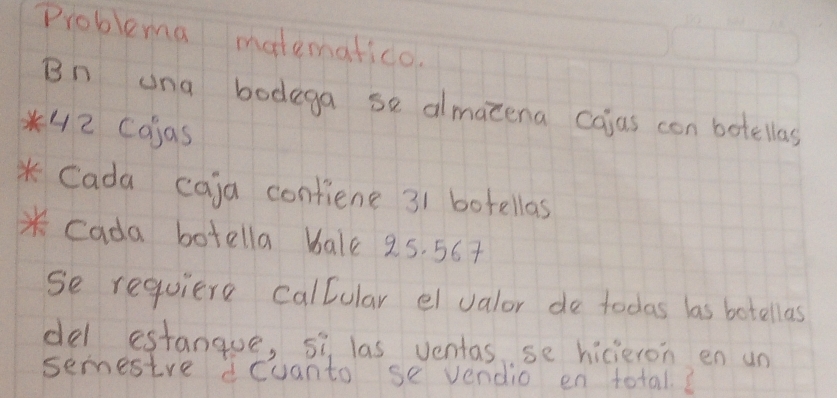 Problema matematico.
Bn una bodega se almacena cajas con botellas
*42 cajas
* Cada caja contiene 31 botellas
* Cada botella Vale 25.567
Se requiere calcular el valor de todas las botellas
del estanque, si las ventas se hicierón en un
semestre ¿Cuanto se vendio en total?